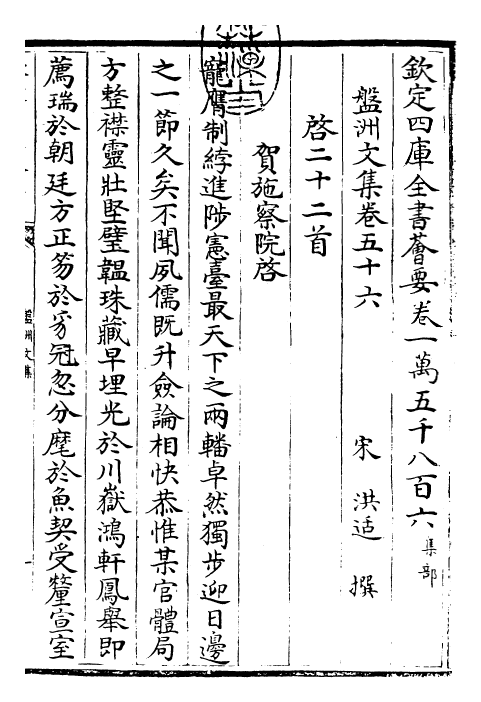 欽定四庫全書薈要卷一萬五千八百六 集部
盤洲文集卷五十六
宋 洪适 撰
啓二十二首
賀施察院啓
寵膺制綍進陟憲臺最天下之兩轓卓然獨步迎日邊
之一節久矣不聞夙儒既升僉論相快恭惟某官體局
方整襟靈壯堅璧韞珠藏早埋光於川嶽鴻軒鳳舉即
薦瑞於朝廷方正笏於豸冠忽分麾於魚契受釐宣室
盤洲文集
一